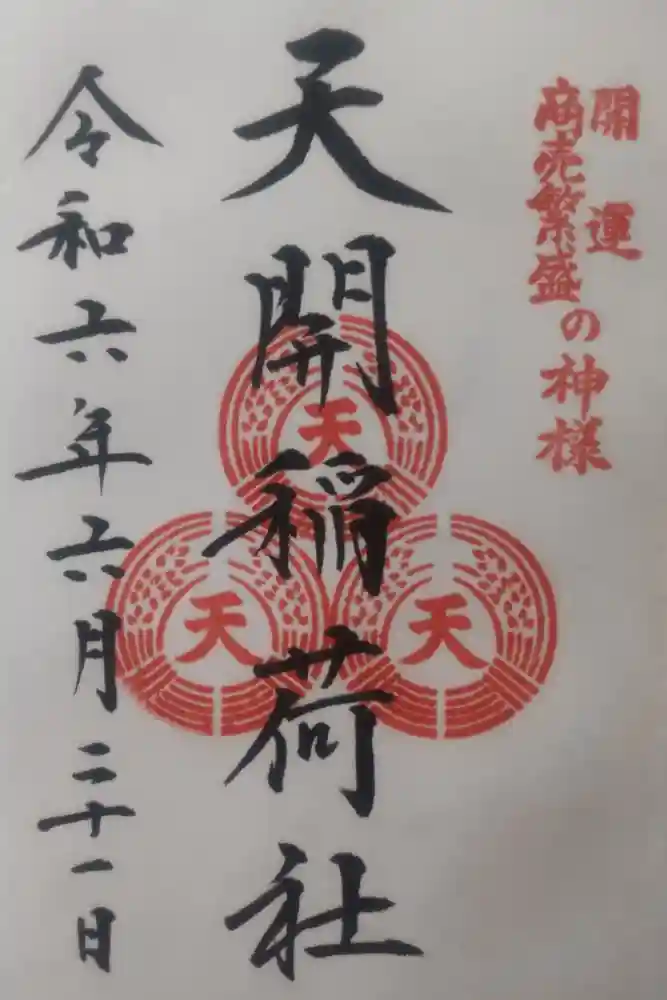 開運
商売繁盛
の神様
天開稲荷社
天
天
天
令和六年六月二十一日